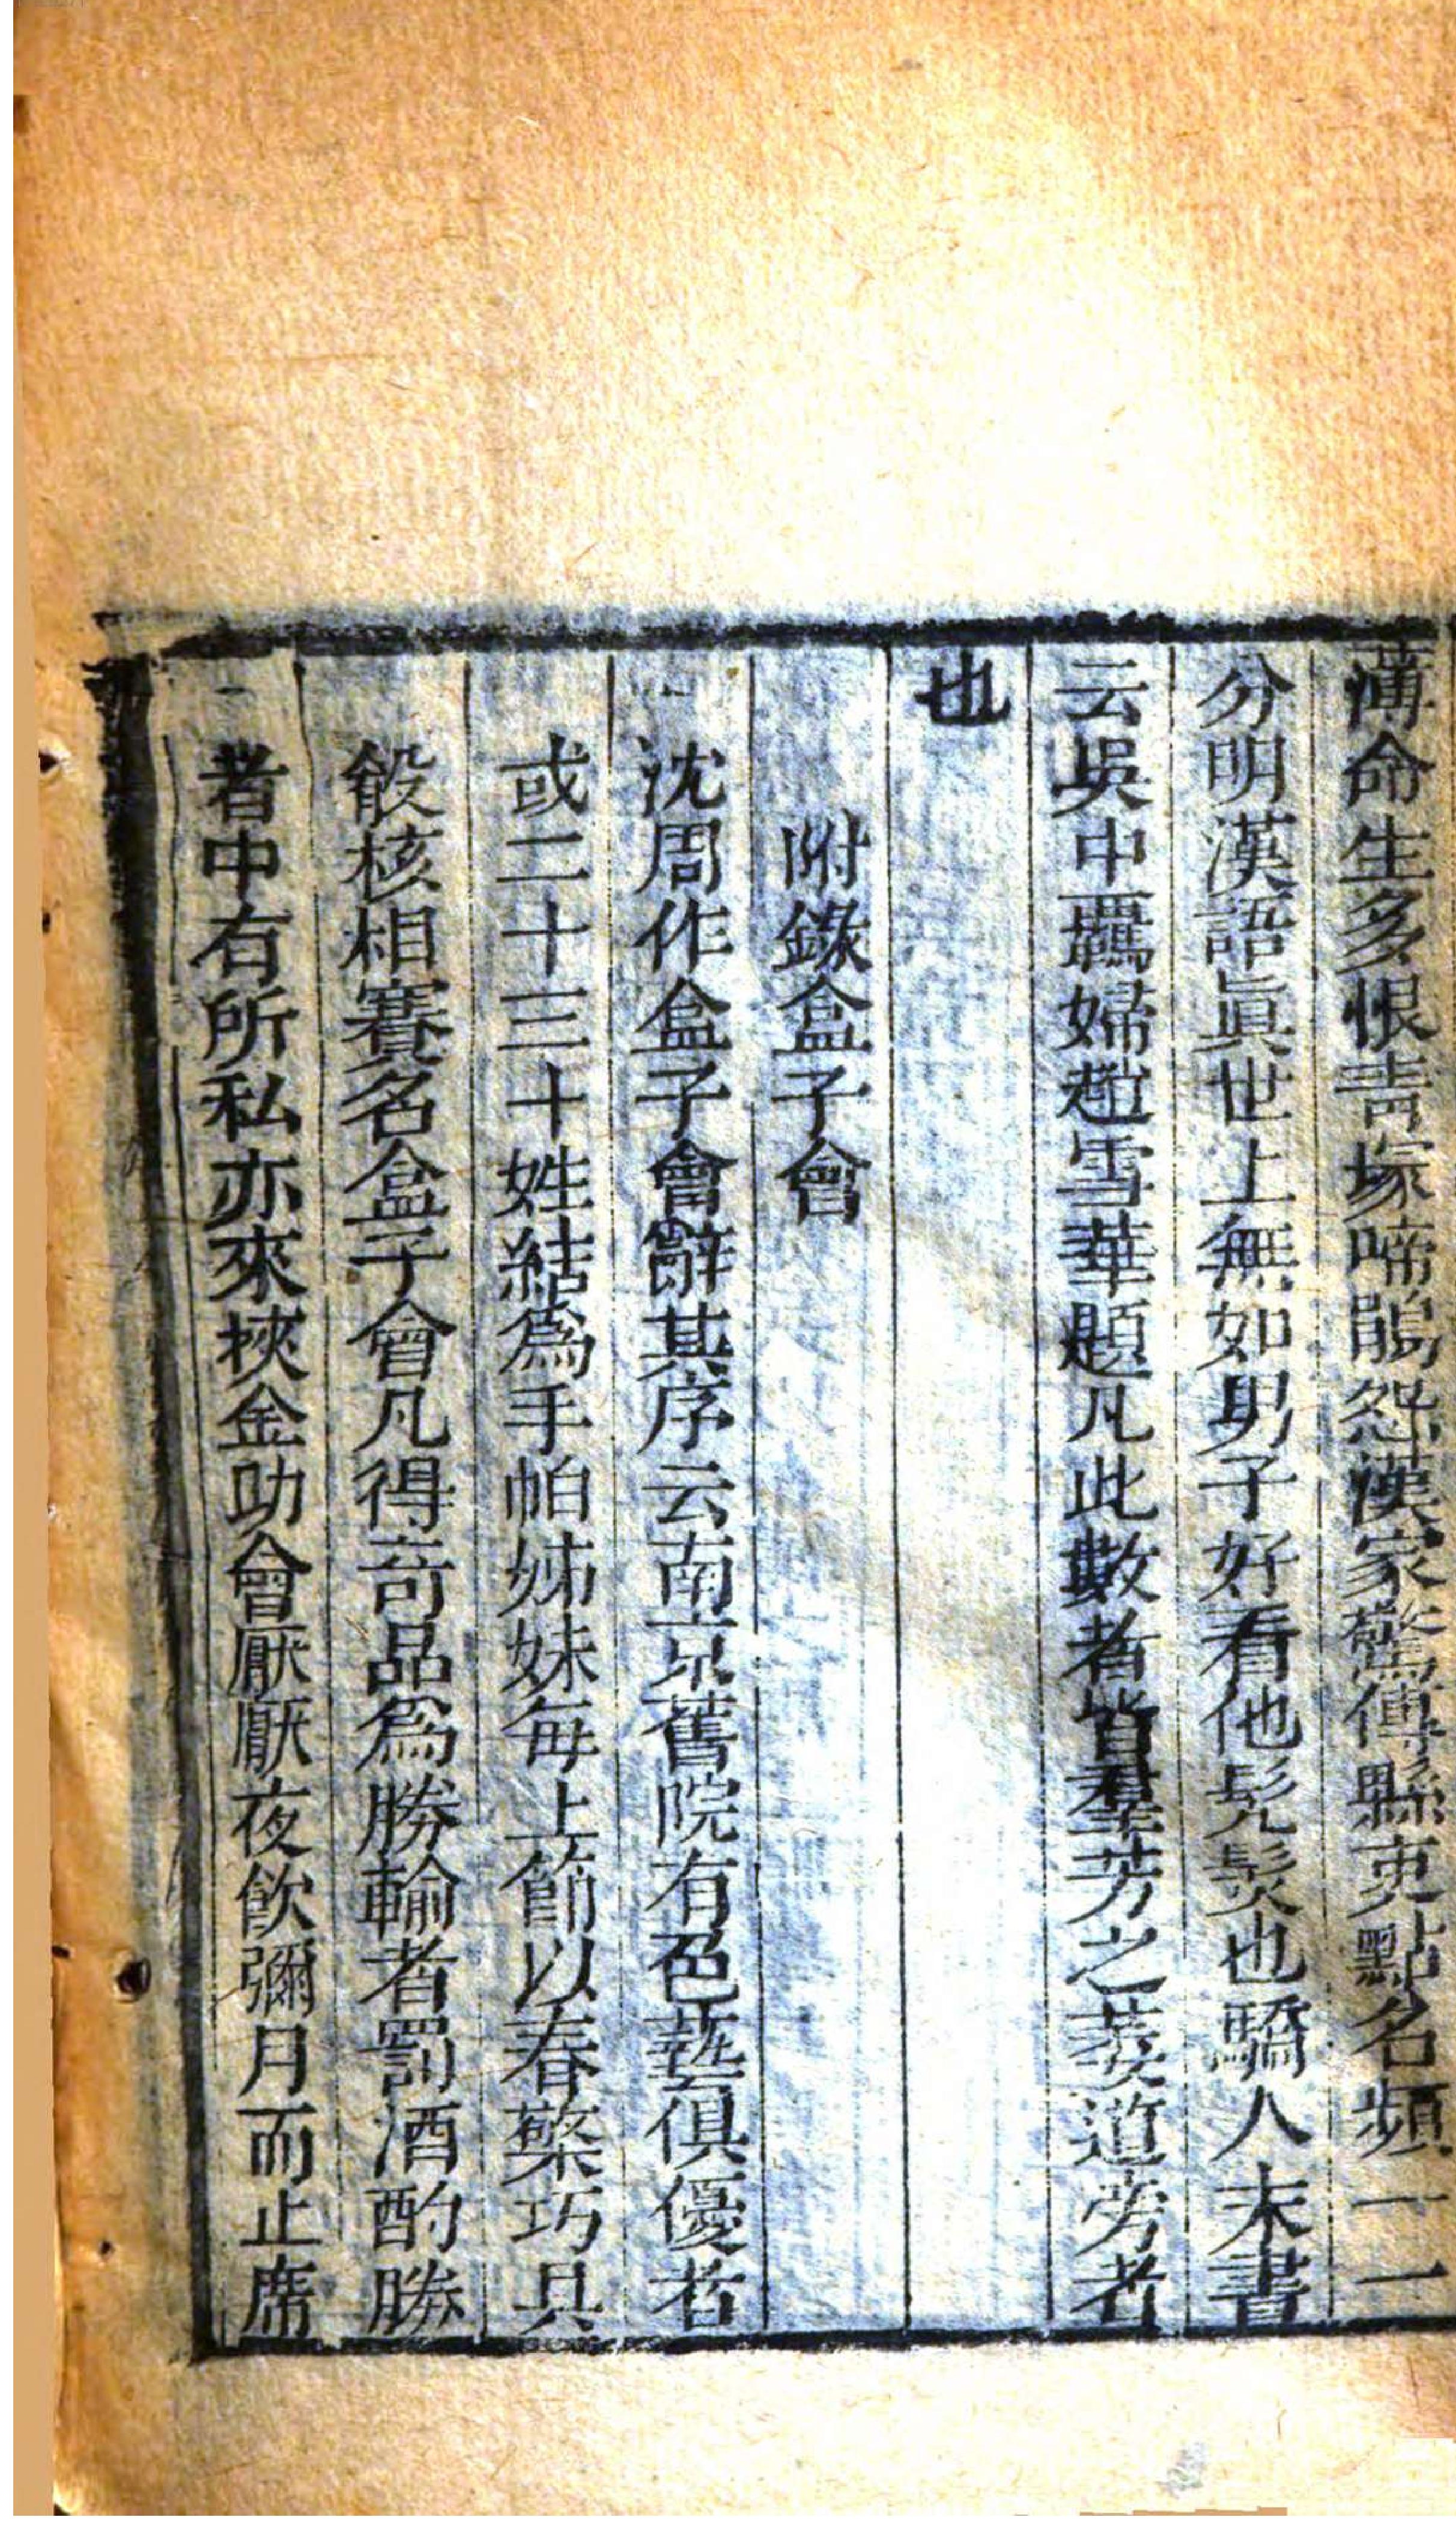 薄命生多恨青塚啼鵑怨漢家驚傳縣吏點名頻一一
分明漢語眞世上無如男子好看他髠髮也驕人末書
云吳中羈婦趙雪華題凡此數者皆羣芳之萎道旁者
也
附錄盒子會
沈周作盒子會辭其序云南京舊院有色藝俱優者
或二十三十姓結爲手帕姊妹每上節以春檠巧具
殽核相賽名盒子會凡得奇品爲勝輸者罰酒酌勝
者中有所私亦來挾金助會厭厭夜飲彌月而止席